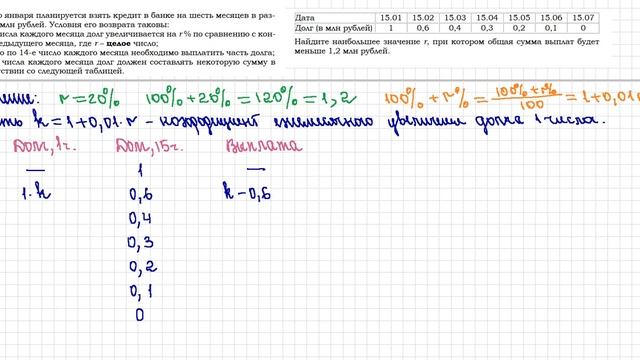 января планируется взять кредит в банке на шесть месяцев в раз-
млн рублей. Условия его возврата таковы:
числа каждого месяца долг увеличивается на r % по сравнению с кон-
едыдущего месяца, где r – целое число;
о по 14-е число каждого месяца необходимо выплатить часть долга;
числа каждого месяца долг должен составлять некоторую сумму в
тствии со следующей таблицей.
Дата 15.01 15.02 15.03 15.04 15.05 15.06 15.07
Долг (в млн рублей) 1 0,6 0,4 0,3 0,2 0,1 0
Найдите наибольшее значение r, при котором общая сумма выплат будет
меньше 1,2 млн рублей.
r=20% 100%+20%=120%=1,2 100%+r%=100%+r%/100=1+0,01
k=1+0,01·r – коэффициент ежемесячного увеличения долга 1 числа.
Долг, 1ч. Долг, 15ч. Выплата
— 1 —
1·k 0,6 k-0,6
0,4
0,3
0,2
0,1
0